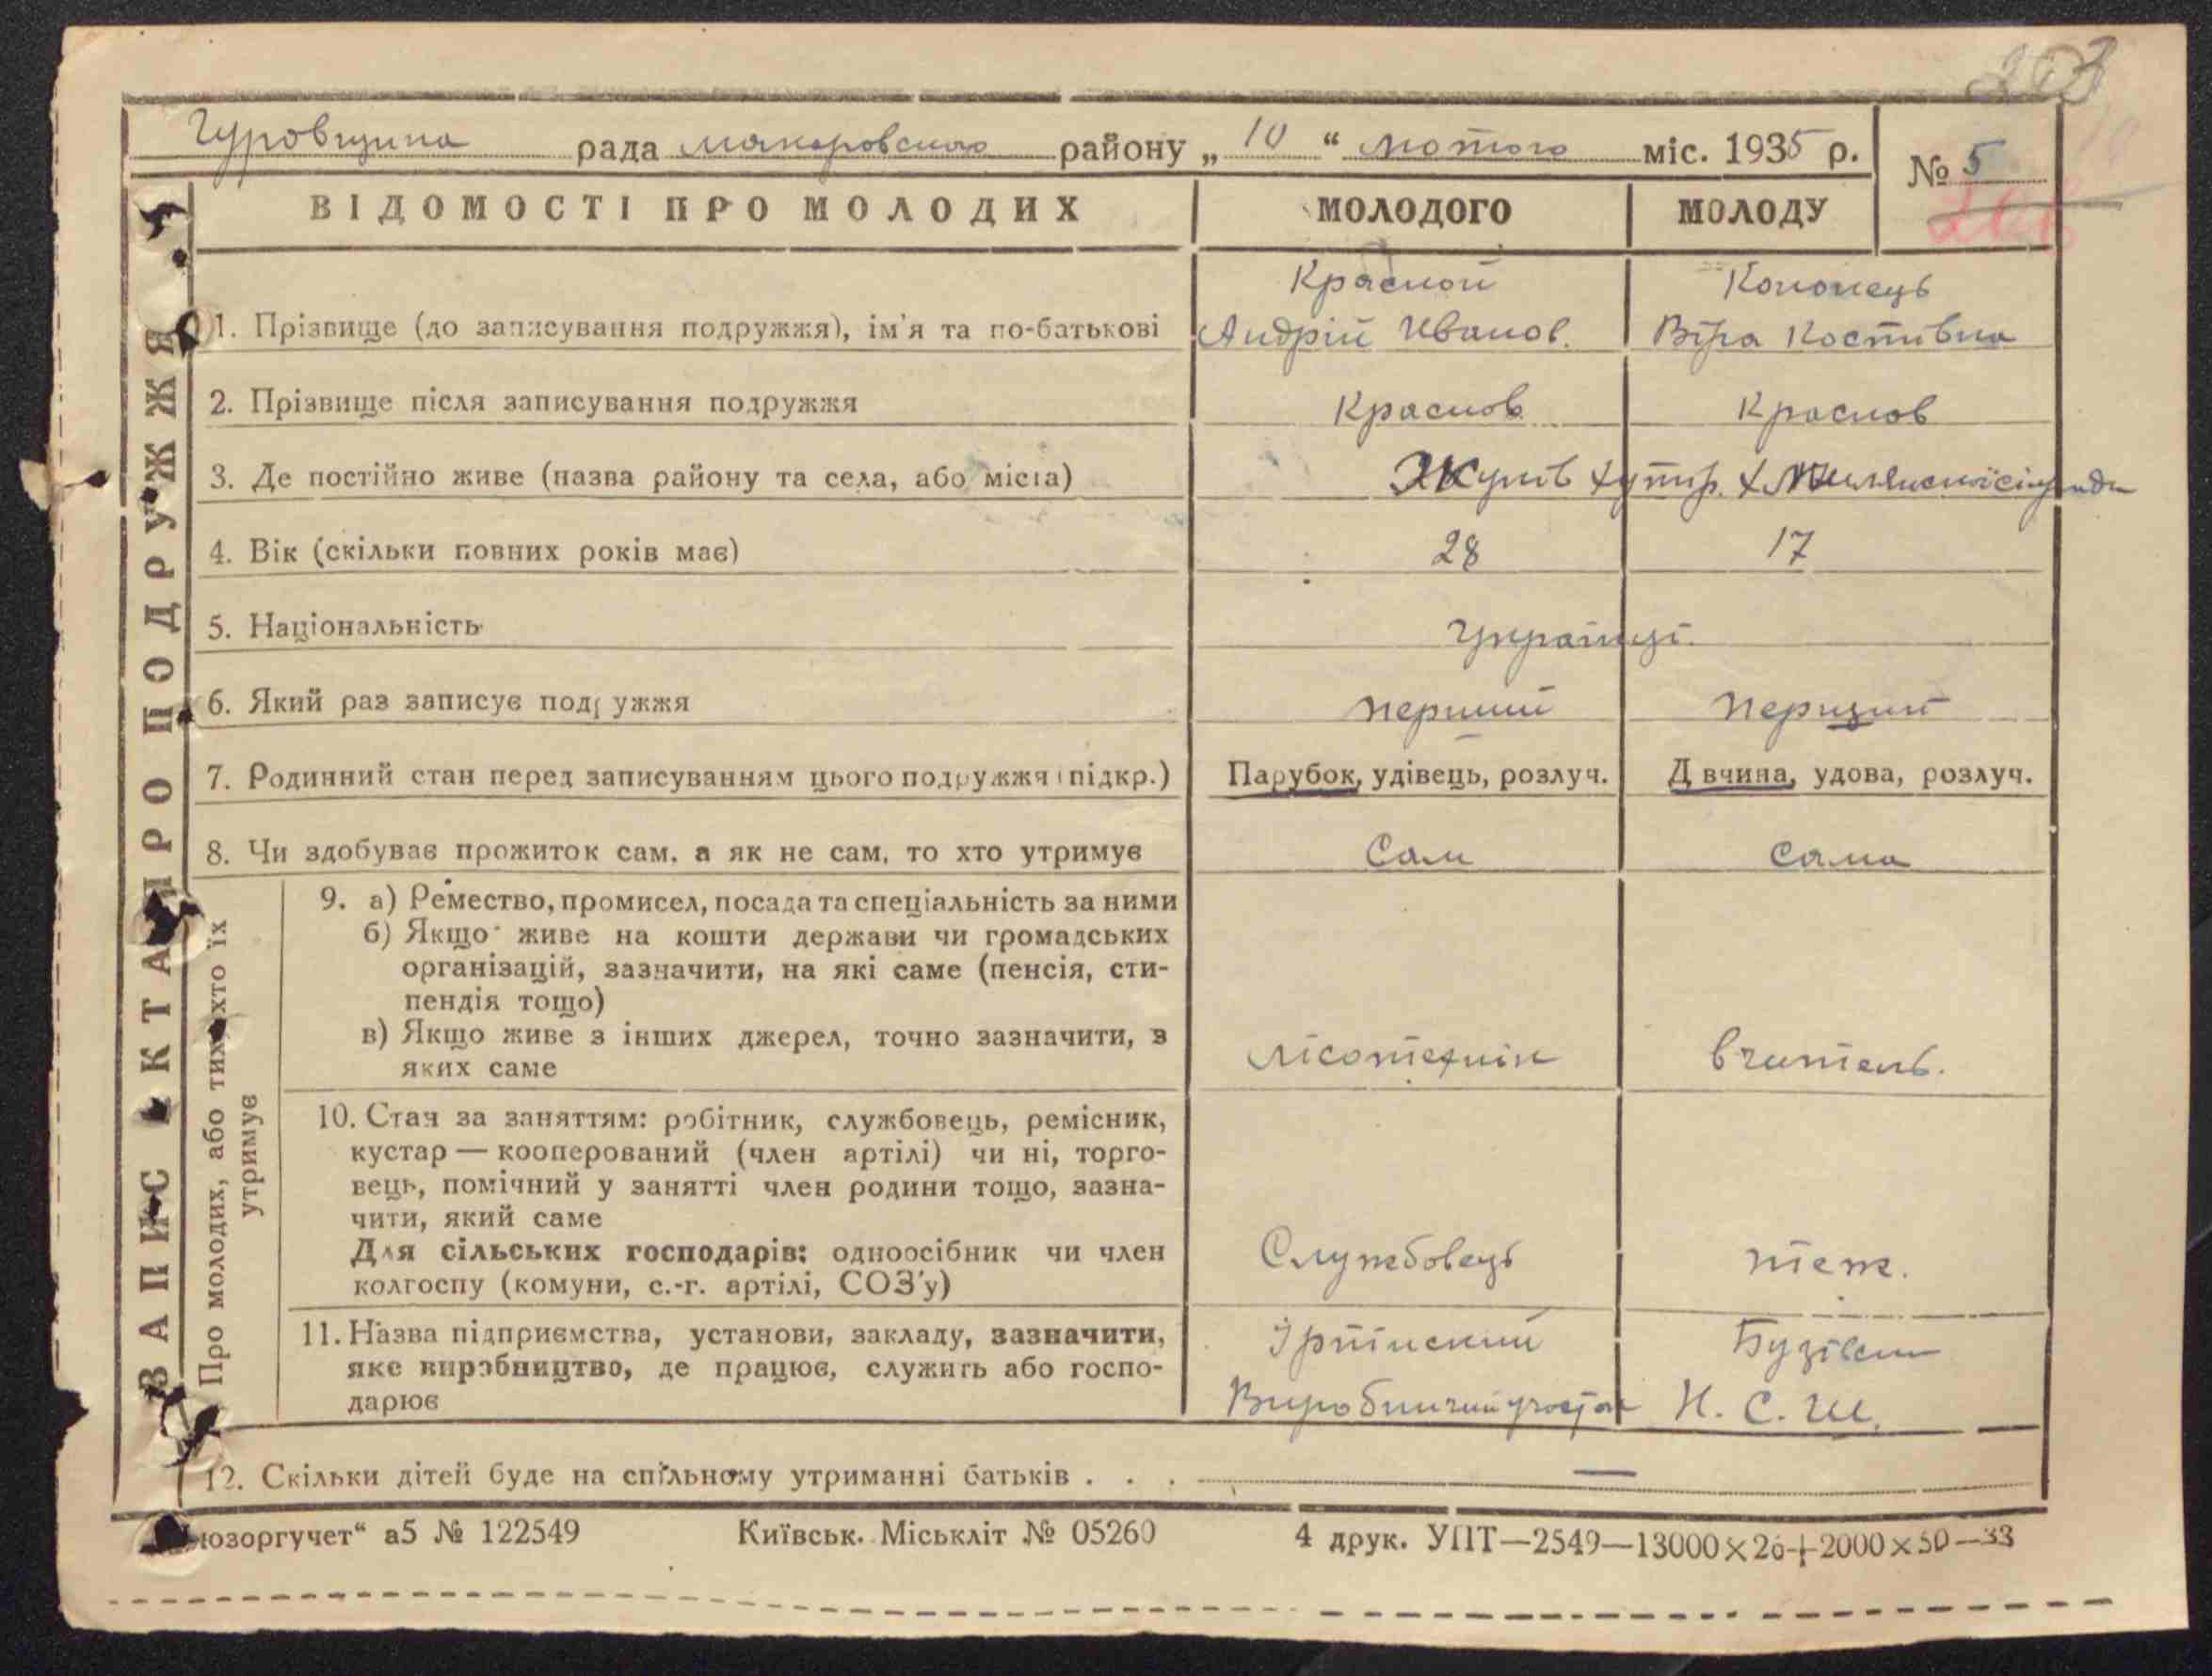 203
Гуровщина рада макаровського району „ 10 “ лютого міс. 1935 р.
№ 5
ВІДОМОСТІ ПРО МОЛОДИХ МОЛОДОГО МОЛОДУ
ЗАПИС АКТА ПРО ПОДРУЖЖЯ
Краснов Кононець
1. Прізвище (до записування подружжя), ім'я та по-батькові Андрій Иванов. Віра Костівна
2. Прізвище після записування подружжя Краснов Краснов
3. Де постійно живе (назва району та села, або міста) хутір
4. Вік (скільки повних років має) 28 17
5. Національність Українці.
6. Який раз записує подружжя перший перший
7. Родинний стан перед записуванням цього подружжя (підкр.) Парубок, удівець, розлуч. Д вчина, удова, розлуч.
8. Чи здобуває прожиток сам, а як не сам, то хто утримує Сам Сама
Про молодих, або тих, хто їх
утримує
9. а) Ремество, промисел, посада та спеціальність за ними
б) Якщо живе на кошти держави чи громадських
організацій, зазначити, на які саме (пенсія, сти-
пендія тощо)
в) Якщо живе з інших джерел, точно зазначити, з
яких саме лісотехнік вчитель.
10. Стан за заняттям: робітник, службовець, ремісник,
кустар — кооперований (член артілі) чи ні, торго-
вець, помічний у занятті член родини тощо, зазна-
чити, який саме
Для сільських господарів: одноосібник чи член
колгоспу (комуни, с.-г. артілі, СОЗ'у) Службовець теж.
11. Назва підприємства, установи, закладу, зазначити,
яке виробництво, де працює, служить або госпо-
дарює
Ірпінский Бузівск
Виробничий участок Н. С. Ш.
12. Скільки дітей буде на спільному утриманні батьків . . . —
юзоргучет“ а5 № 122549 Київськ. Міськліт № 05260 4 друк. УПТ—2549—13000×26+2000×50—33